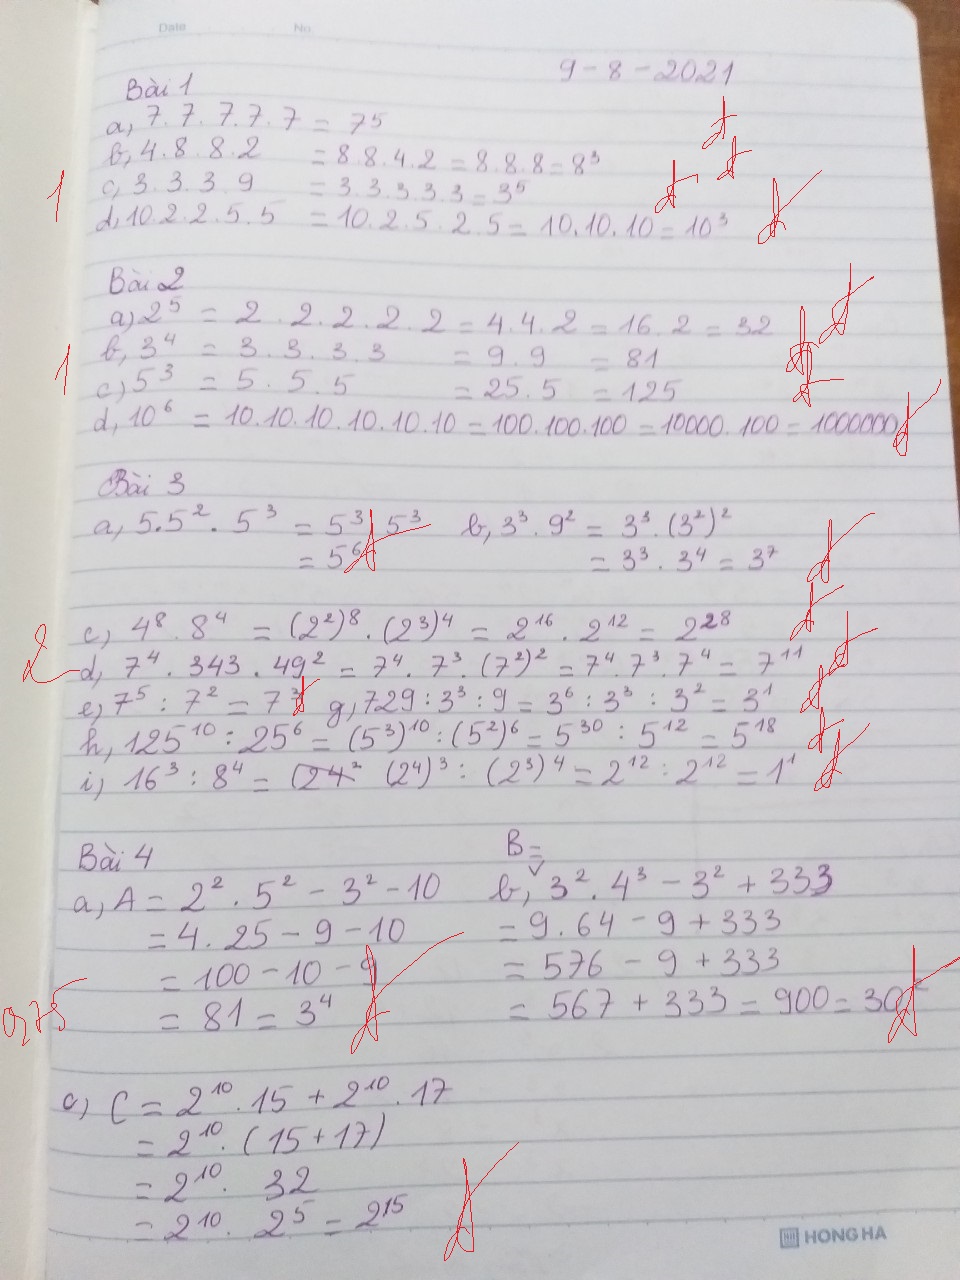 Date No.
9-8-2021
Bài 1
a, 7.7.7.7.7 = 7⁵
b, 4.8.8.2 = 8.8.4.2 = 8.8.8 = 8³
c, 3.3.3.9 = 3.3.3.3.3 = 3⁵
1
d, 10.2.2.5.5 = 10.2.5.2.5 = 10.10.10 = 10³
Bài 2
a, 2⁵ = 2.2.2.2.2 = 4.4.2 = 16.2 = 32
b, 3⁴ = 3.3.3.3 = 9.9 = 81
1
c, 5³ = 5.5.5 = 25.5 = 125
d, 10⁶ = 10.10.10.10.10.10 = 100.100.100 = 10000.100 = 1000000
Bài 3
a, 5.5².5³ = 5³.5³ b, 3³.9² = 3³.(3²)²
= 5⁶ = 3³.3⁴ = 3⁷
c, 4⁸.8⁴ = (2²)⁸.(2³)⁴ = 2¹⁶.2¹² = 2²⁸
2
d, 7⁴.343.49² = 7⁴.7³.(7²)² = 7⁴.7³.7⁴ = 7¹¹
e, 7⁵:7² = 7³ g, 729:3³:9 = 3⁶:3³:3² = 3¹
h, 125¹⁰:25⁶ = (5³)¹⁰:(5²)⁶ = 5³⁰:5¹² = 5¹⁸
i, 16³:8⁴ = (2⁴)³:(2³)⁴ = 2¹²:2¹² = 1¹
Bài 4 B =
a, A = 2².5² - 3² - 10 b, 3².4³ - 3² + 333
= 4.25 - 9 - 10 = 9.64 - 9 + 333
= 100 - 10 - 9 = 576 - 9 + 333
0,75
= 81 = 3⁴ = 567 + 333 = 900 = 30²
c, C = 2¹⁰.15 + 2¹⁰.17
= 2¹⁰.(15+17)
= 2¹⁰. 32
= 2¹⁰. 2⁵ = 2¹⁵
HONG HA